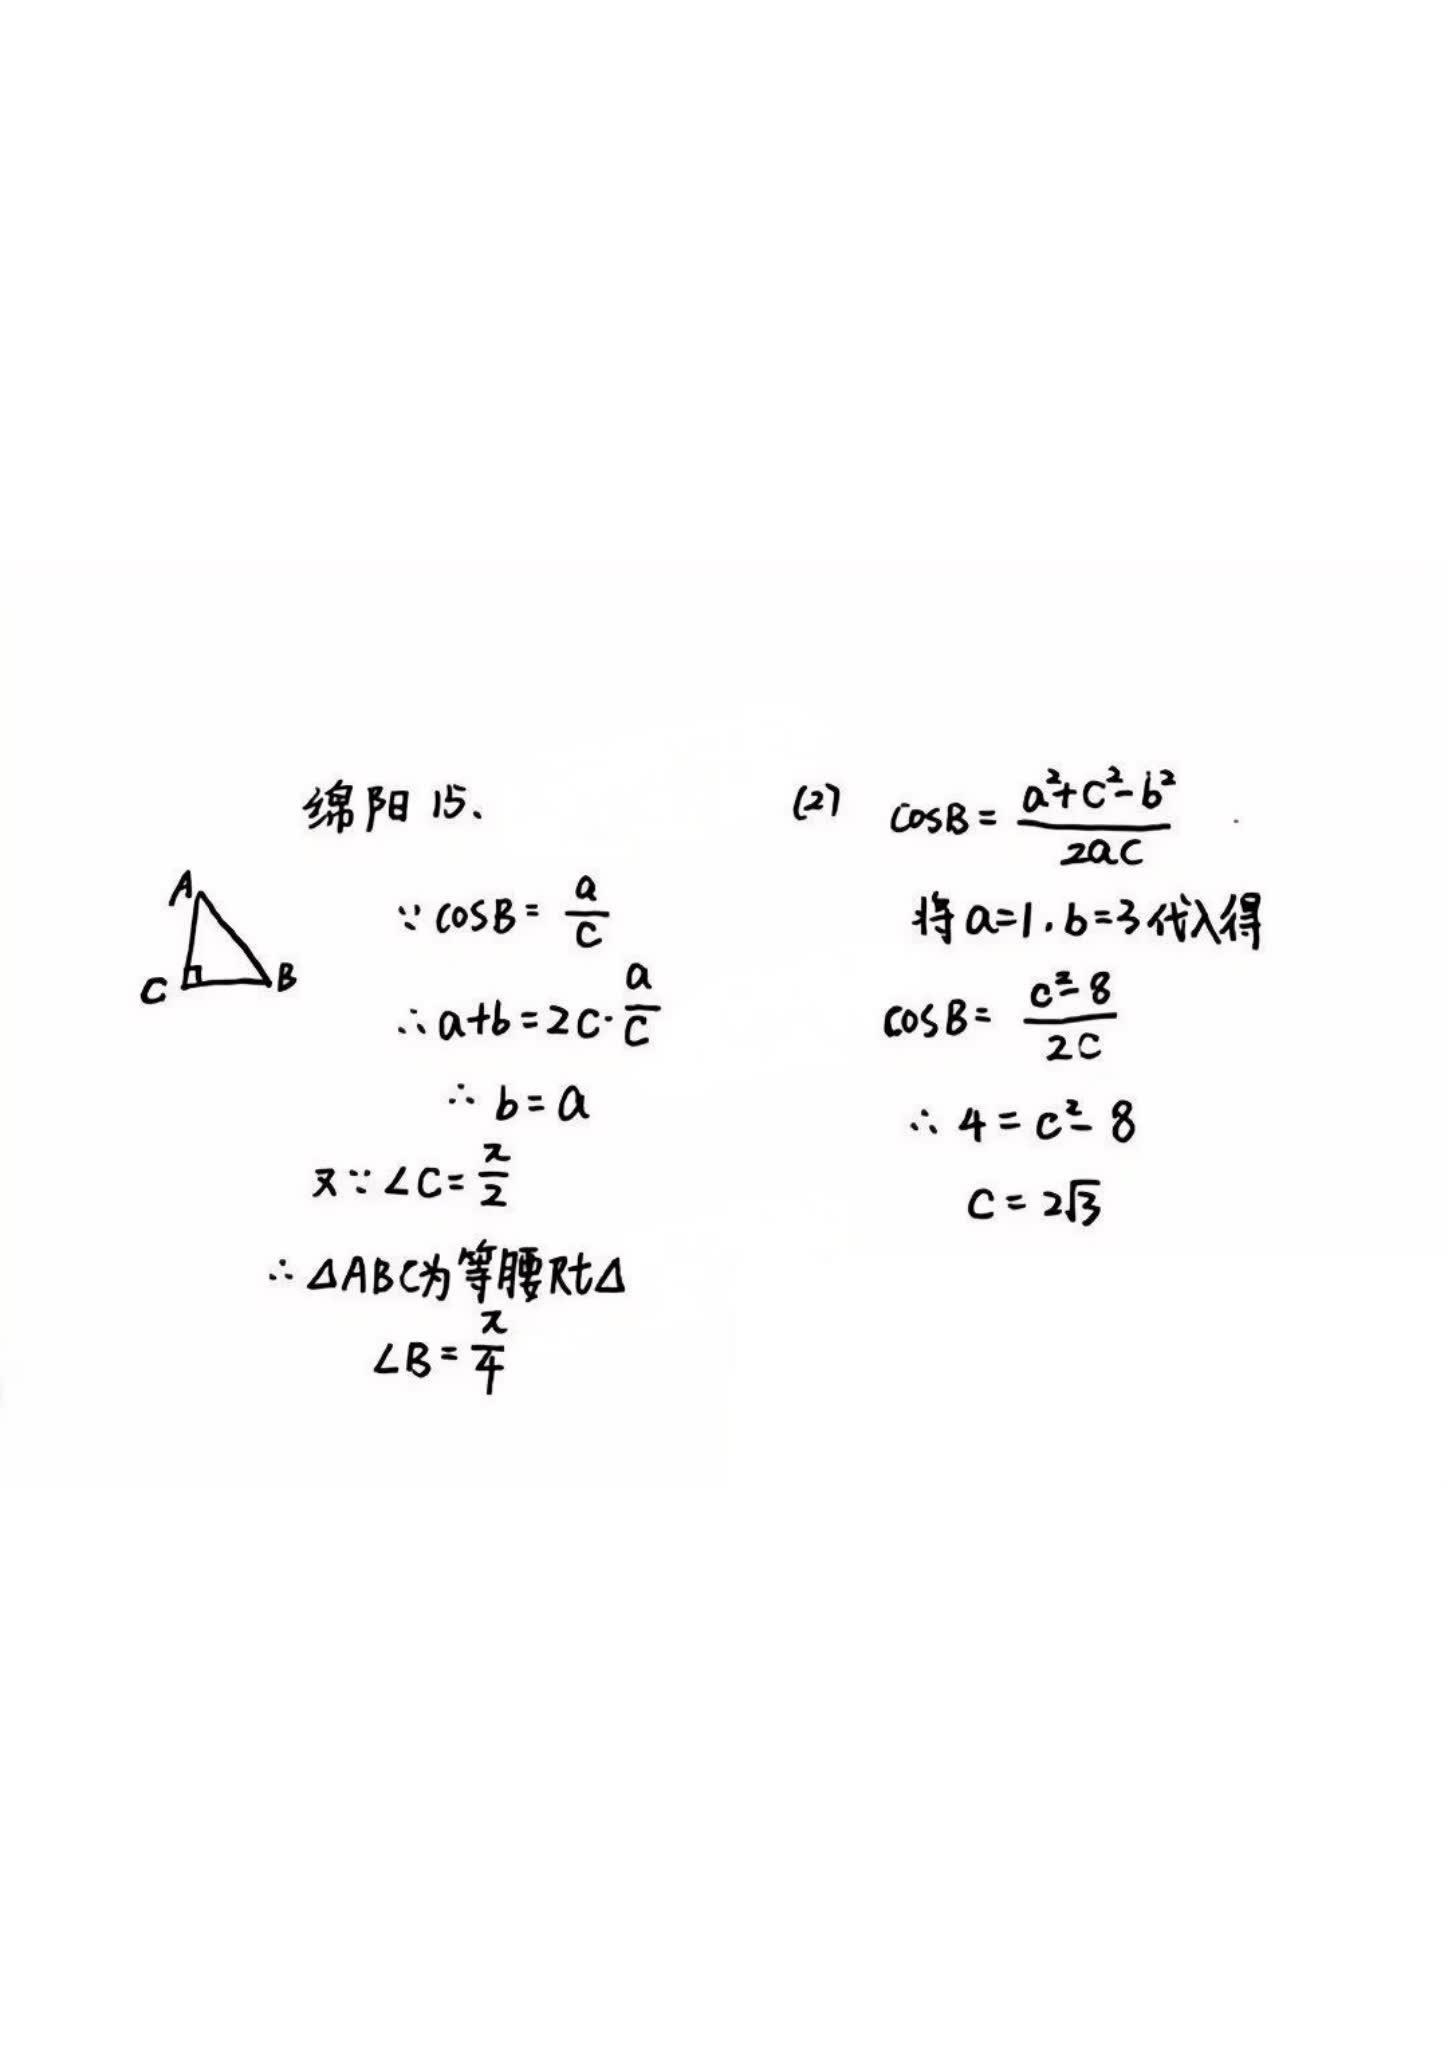 绵阳 15、
A
C
B
∵ cosB = a/c
∴ a+b = 2c·a/c
∴ b = a
又∵ ∠C = π/2
∴ △ABC为等腰Rt△
∠B = π/4
(2) cosB = (a²+c²-b²)/2ac
将 a=1.b=3代入得
cosB = (c²-8)/2c
∴ 4 = c²-8
c = 2√3